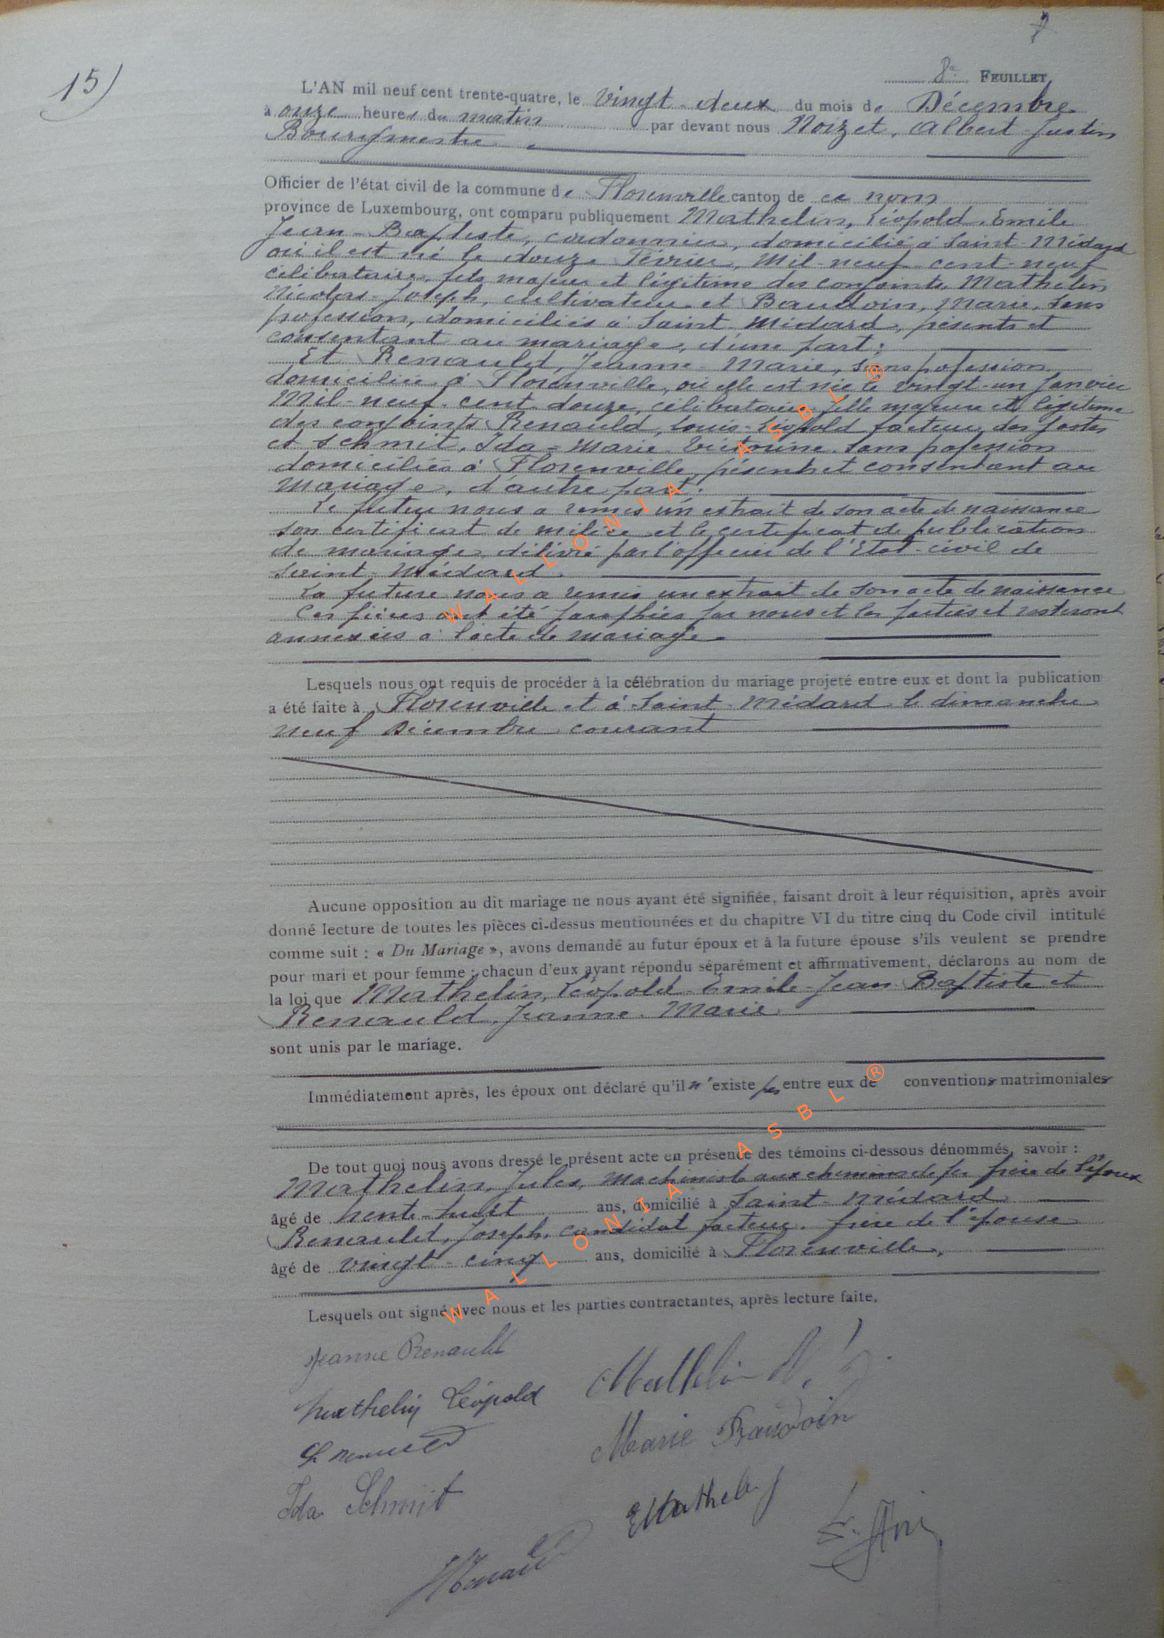 7
15)
8e FEUILLET.
L'AN mil neuf cent trente-quatre, le Vingt-deux du mois de Décembre
à onze heures du matin par devant nous Noizet, Albert-Justin
Bourgmestre
Officier de l'état civil de la commune de Florenville canton de ce nom
province de Luxembourg, ont comparu publiquement Mathelin, Léopold-Emile
Jean-Baptiste, cordonnier, domicilié à Saint-Médard
où il est né le douze Février, Mil-neuf-cent-neuf
célibataire, fils majeur et légitime des conjoints Mathelin
Nicolas-Joseph, cultivateur et Baudoin, Marie, sans
profession, domiciliés à Saint-Médard, présents et
consentant au mariage, d'une part;
Et Renauld, Jeanne-Marie, sans profession,
domiciliée à Florenville, où elle est née le vingt-un Janvier
Mil-neuf-cent-douze, célibataire, fille majeure et légitime
des conjoints Renauld, Louis-Léopold facteur des postes
et Schmit, Ida-Marie-Victorine, sans profession
domiciliés à Florenville, présents et consentant au
mariage, d'autre part.
Le futur nous a remis un extrait de son acte de naissance
son certificat de milice et le certificat de publication
de mariage délivré par l'officier de l'Etat-civil de
Saint-Médard
La future nous a remis un extrait de son acte de naissance
Ces pièces ont été paraphées par nous et les parties et resteront
annexées à l'acte de mariage.
Lesquels nous ont requis de procéder à la célébration du mariage projeté entre eux et dont la publication
a été faite à Florenville et à Saint-Médard le dimanche
neuf Décembre courant
Aucune opposition au dit mariage ne nous ayant été signifiée, faisant droit à leur réquisition, après avoir
donné lecture de toutes les pièces ci-dessus mentionnées et du chapitre VI du titre cinq du Code civil intitulé
comme suit : « Du Mariage », avons demandé au futur époux et à la future épouse s'ils veulent se prendre
pour mari et pour femme ; chacun d'eux ayant répondu séparément et affirmativement, déclarons au nom de
la loi que Mathelin, Léopold-Emile-Jean-Baptiste et
Renauld, Jeanne-Marie
sont unis par le mariage.
Immédiatement après, les époux ont déclaré qu'il n'existe pas entre eux de conventions matrimoniales
De tout quoi nous avons dressé le présent acte en présence des témoins ci-dessous dénommés, savoir :
Mathelin, Jules, Machiniste aux chemins de fer frère de l'époux
âgé de trente-huit ans, domicilié à Saint-Médard
Renauld, Joseph, candidat facteur, frère de l'épouse
âgé de vingt-cinq ans, domicilié à Florenville,
Lesquels ont signé avec nous et les parties contractantes, après lecture faite.
Jeanne Renauld
Mathelin N.J.
Mathelin Léopold
Marie Baudoin
Ida Schmit
Mathelin J
WALLONIA ASBL ®
WALLONIA ASBL ®